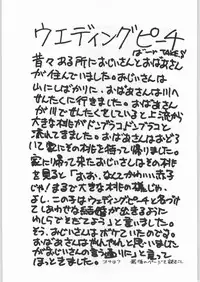 ウエディングピーチ
ばーど TAKESI
昔々ある所におじいさんとおばあさん
が住んでいました。おじいさんは
山にしばかりに、おばあさんは川へ
せんたくに行きました。おばあさん
が川でせんたくをしていると上流から
大きな桃がドンブラコドンブラコと
流れてきました。おばあさんはおどろ
いて家にその桃を持って帰りました。
家に帰って来たおじいさんはその桃
を見ると「おお、なんてかわいい赤子
じゃ!まるで大きな桃の様じゃ。
よし、この子はウエディングピーチと名づけ
てしあわせな結婚が出きるように
ねらいてそだてよう」と言いました。
そう、おじいさんはボケていたのでした。
おばあさんはやれやれと思いました
がおじいさんの言う通りに」と言って
ほっときました。